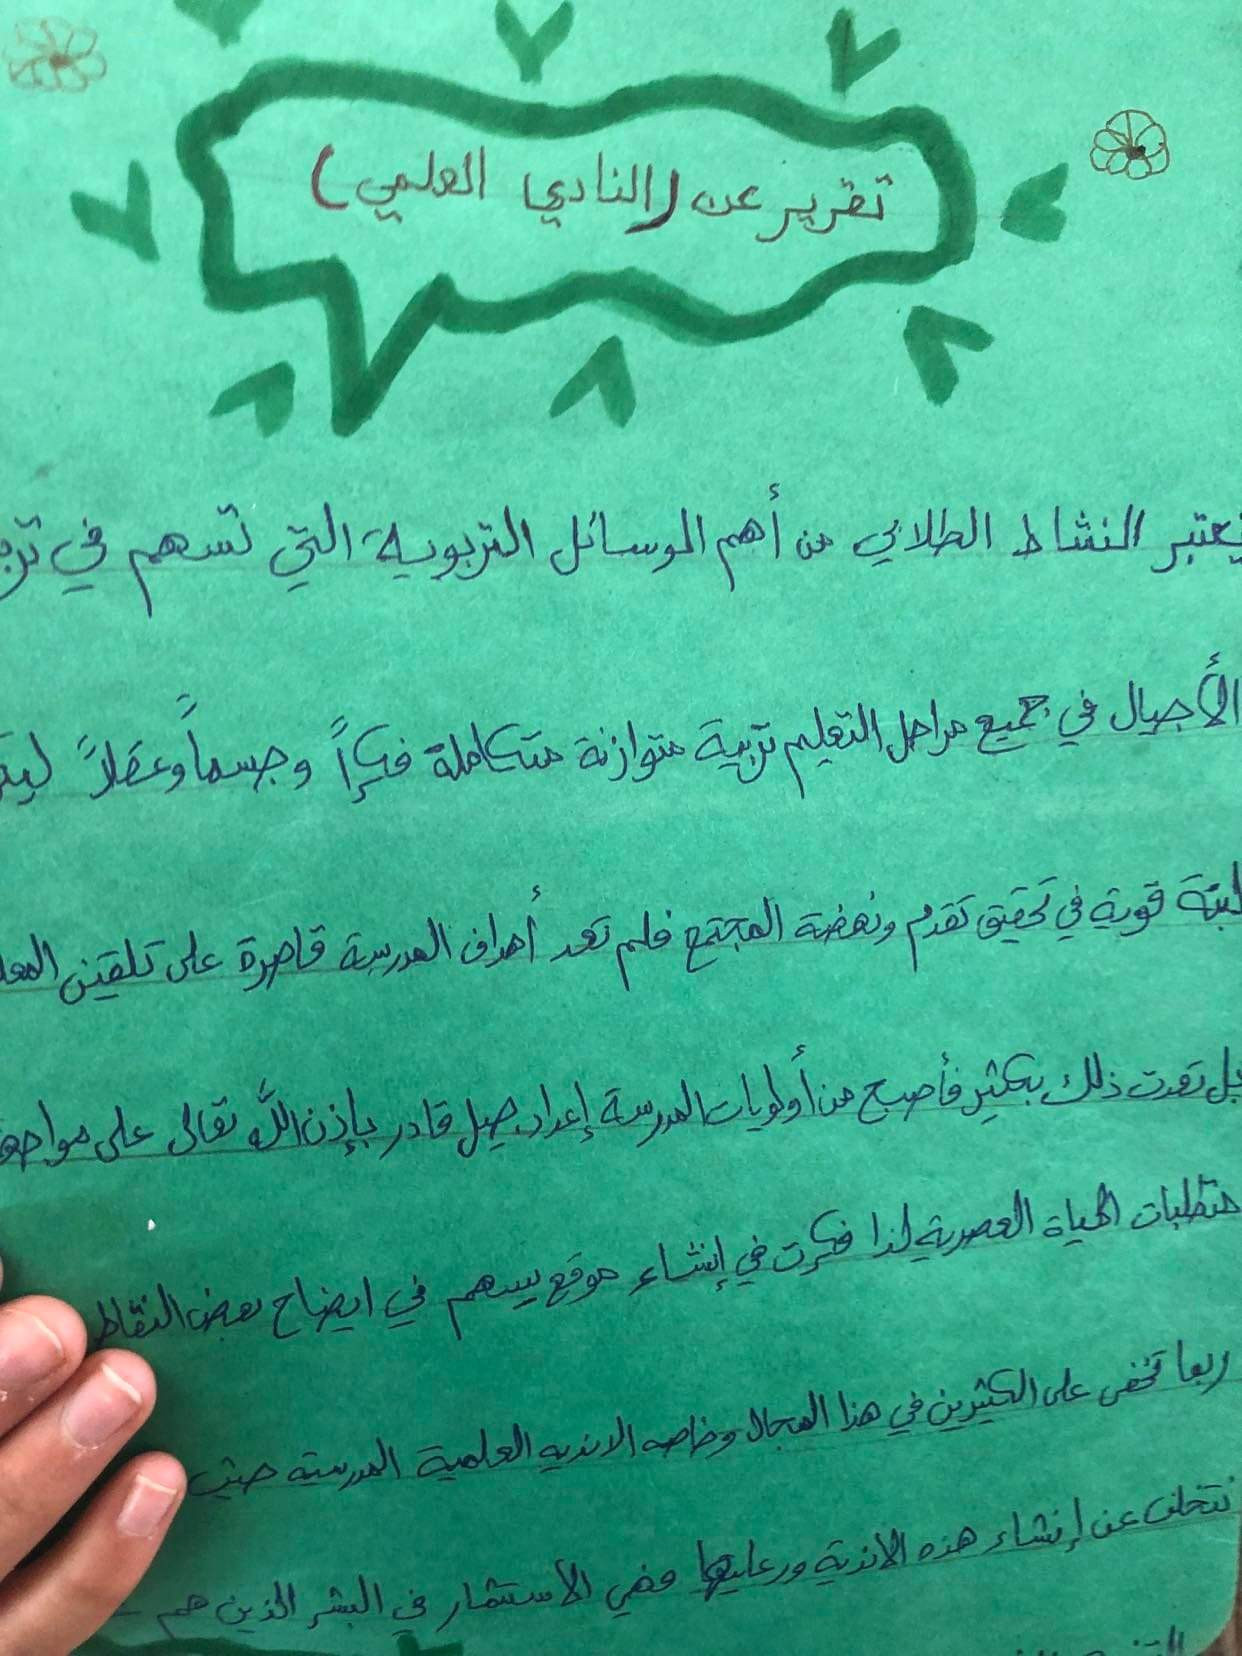 تقرير عن (النادي العلمي)
يعتبر النشاط الطلابي من أهم الوسائل التربوية التي تسهم في
الأجيال في جميع مراحل التعليم تربية متوازنة متكاملة فكراً وجسماً وعقلاً
لبنة قوية في تحقيق تقدم ونهضة المجتمع فلم تعد أهداف المدرسة قاصرة على تلقين
بل تعدت ذلك بكثير فأصبح من أولويات المدرسة إعداد جيل قادر بإذن الله تعالى على
متطلبات الحياة العصرية لذا فكرت في إنشاء موقع يسهم في ايضاح بعض النقاط
ربما تخفى على الكثيرين في هذا المجال وخاصه الانديه العلمية المدرسية حيث
إنشاء هذه الاندية ورعايتها الاستثمار في البشر الذين هم